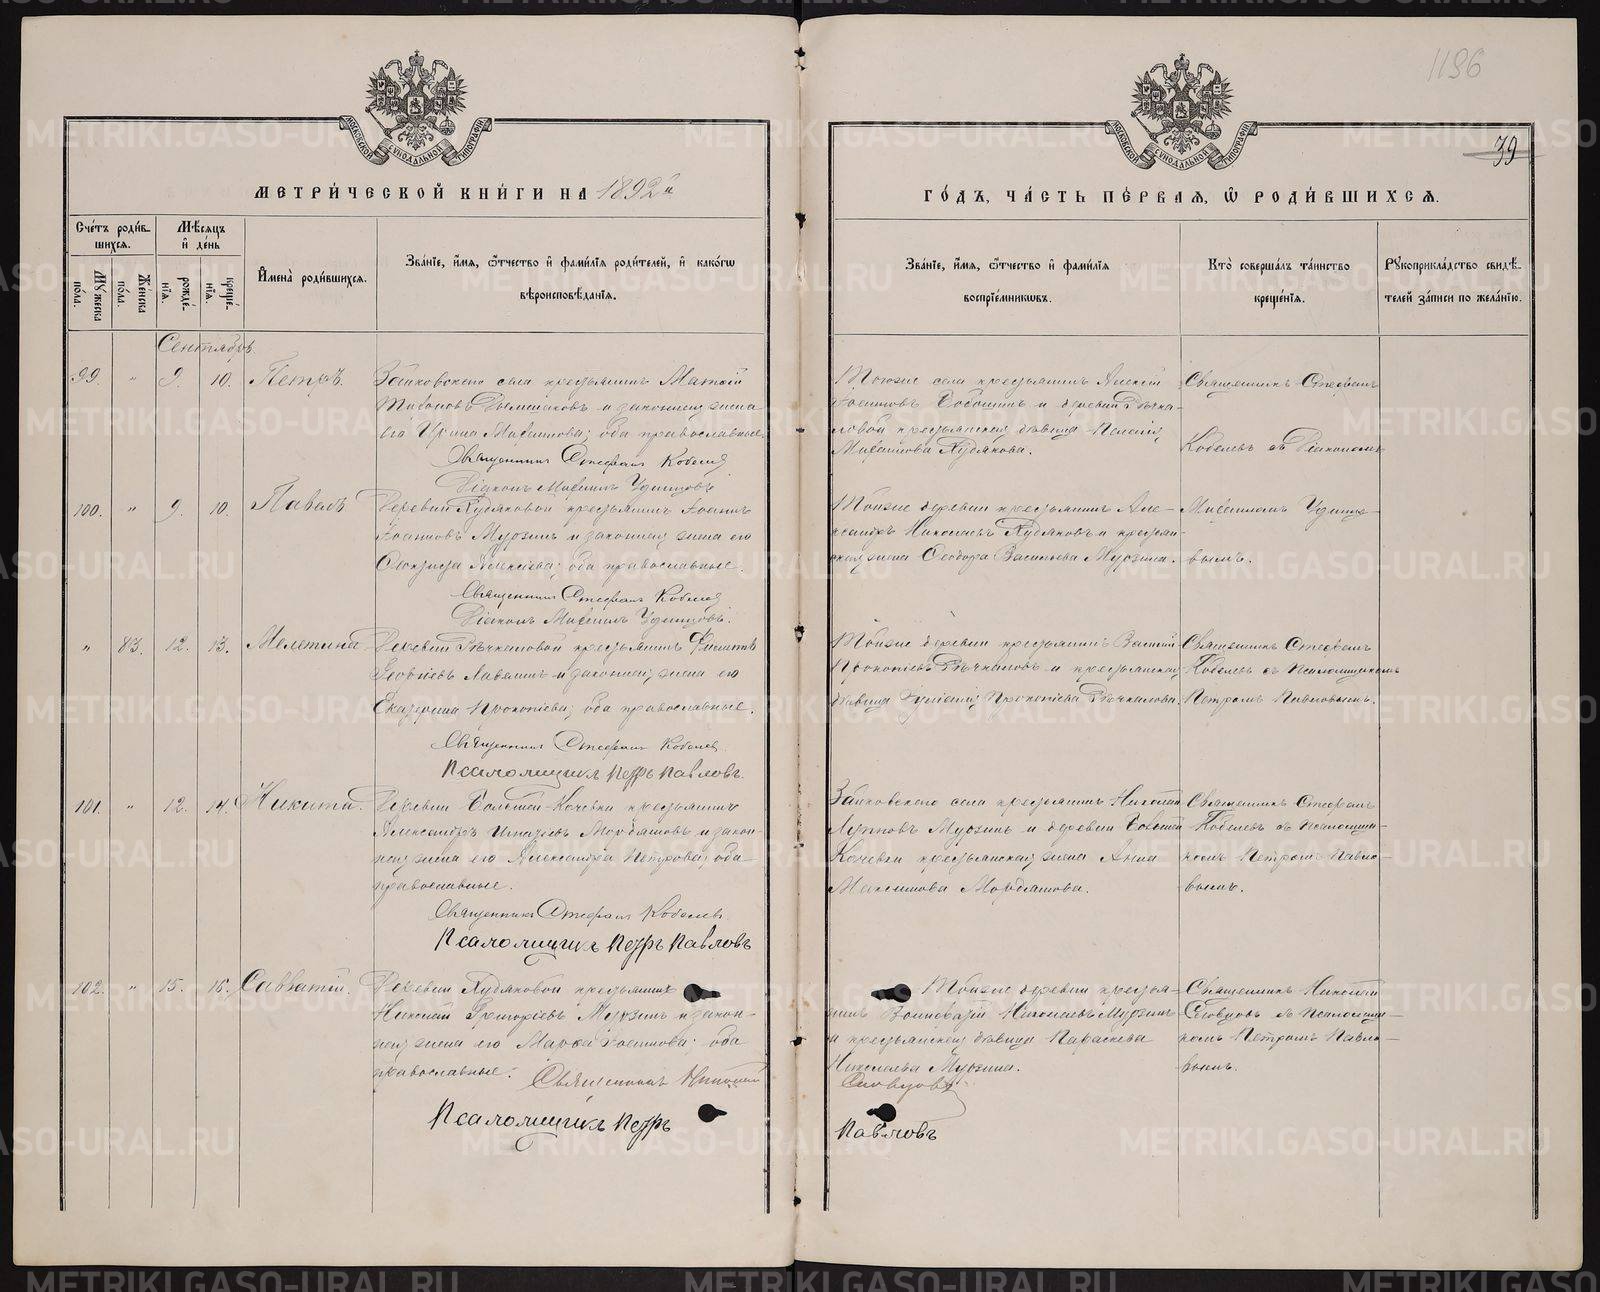 1196
39
МЕТРИ́ЧЕСКОЙ КНИ́ГИ НА 1892й
ГО́ДЪ, ЧА́СТЬ ПЕ́РВАЯ, Ѡ РОДИ́ВШИХСЯ.
Сче́тъ роди́в-
шихся.
Мѣ́сяцъ
и де́нь
Му́жеска по́ла.
Же́нска по́ла.
рожде́нїя.
креще́нїя.
Имена̀ роди́вшихся.
Зва́нїе, и́мя, ѻ́тчество и фами́лїя роди́телей, и како́гѡ
вѣроисповѣ́данїя.
Зва́нїе, и́мя, ѻ́тчество и фами́лїя
воспрїе́мниковъ.
Кто̀ соверша́лъ та́инство
креще́нїя.
Рукоприкла́дство свидѣ́-
телей за́писи по жела́нїю.
Сентябрь.
99. " 9. 10. Петръ.
Зайковскаго села крестьянинъ Матѳій
и законная жена
его Ирина Михаилова; оба православные.
Священникъ Стефанъ Кобелев
Діаконъ Михаилъ Удинцовъ
Тогоже села крестьянинъ Алексій
и деревни Рѣчка-
ловой крестьянская дѣвица Пелагія
Михайлова Худякова.
Священникъ Стефанъ
Кобелевъ съ Діакономъ
100. " 9. 10. Павелъ
Деревни Худяковой крестьянинъ Іоаннъ
Іоанновъ Мурзинъ и законная жена его
Алексіева; оба православные.
Священникъ Стефанъ Кобелев
Діаконъ Михаилъ Удинцовъ.
Тойже деревни крестьянинъ Але-
ксандръ Николаевъ Худяковъ и крестьян-
ская жена Ѳеодора Васильева Мурзина.
Михаиломъ Удинцо-
вымъ.
" 83. 12. 13. Мелетина
Деревни Рѣчкаловой крестьянинъ Филиппъ
и законная жена его
Екатерина Прокопіева; оба православные.
Священникъ Стефанъ Кобелев
Псаломщикъ Петръ Павловъ.
Тойже деревни крестьянинъ Василій
Прокопіевъ Рѣчкаловъ и крестьянская
дѣвица Прокопіева Рѣчкалова.
Священникъ Стефанъ
Кобелевъ съ Псаломщикомъ
Петромъ Павловымъ.
101. " 12. 14. Никита.
Деревни Большой-Кочевки крестьянинъ
Александръ Игнатіевъ Мордяшовъ и закон-
ная жена его Александра Петрова; оба
православные.
Священникъ Стефанъ Кобелевъ
Псаломщикъ Петръ Павловъ
Зайковскаго села крестьянинъ Николай
Мурзинъ и деревни Большой
Кочевки крестьянская жена Анна
Максимова Мордяшова.
Священникъ Стефанъ
Кобелевъ съ Псаломщи-
комъ Петромъ Павло-
вымъ.
102. " 15. 16. Савватій.
Деревни Худяковой крестьянинъ
Николай Григоріевъ Мурзинъ и закон-
ная жена его Марѳа Іоаннова; оба
православные. Священникъ Николай
Псаломщикъ Петръ
Тойже деревни крестья-
нинъ Николаевъ Мурзинъ
и крестьянская дѣвица Параскева
Николаева Мурзина.
Словцовъ
Павловъ
Священникъ Николай
Словцовъ съ Псаломщи-
комъ Петромъ Павло-
вымъ.
METRIKI.GASO-URAL.RU